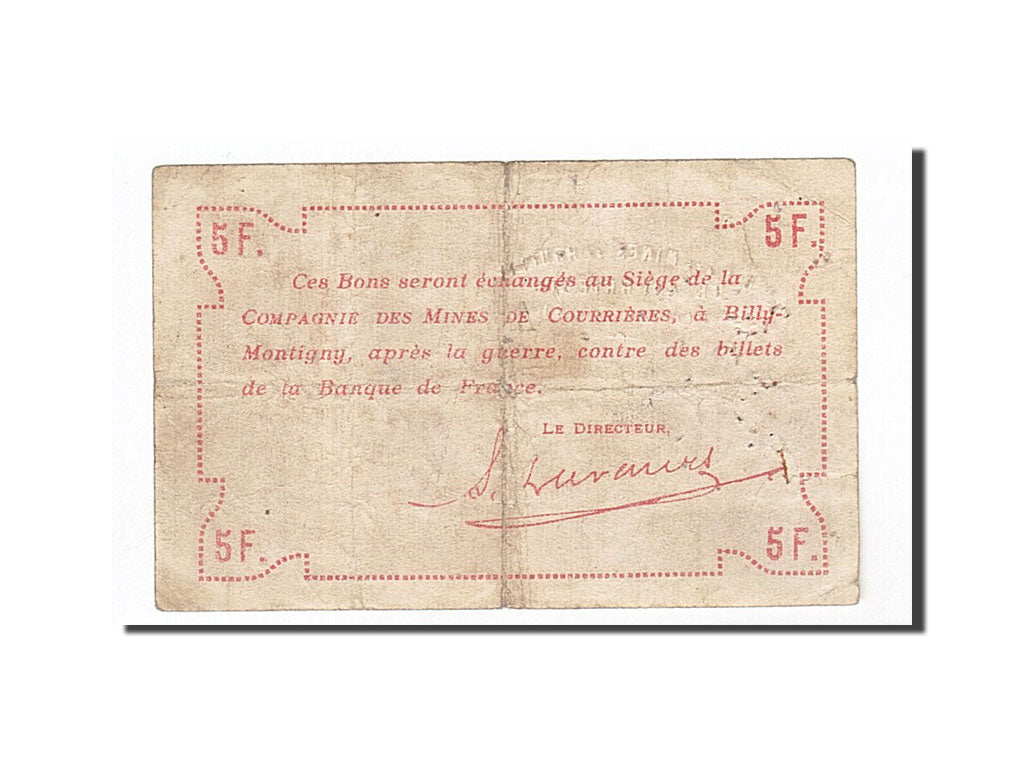 5 F. 5 F.
Ces Bons seront échangés au Siège de la
COMPAGNIE DES MINES DE COURRIÈRES, à Billy-
Montigny, après la guerre, contre des billets
de la Banque de France.
LE DIRECTEUR,
5 F. 5 F.